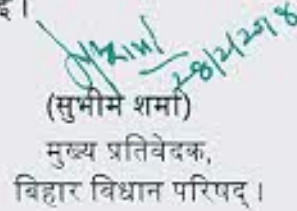 है।
28/2/2018
(सुभीम शर्मा)
मुख्य प्रतिवेदक,
बिहार विधान परिषद्।